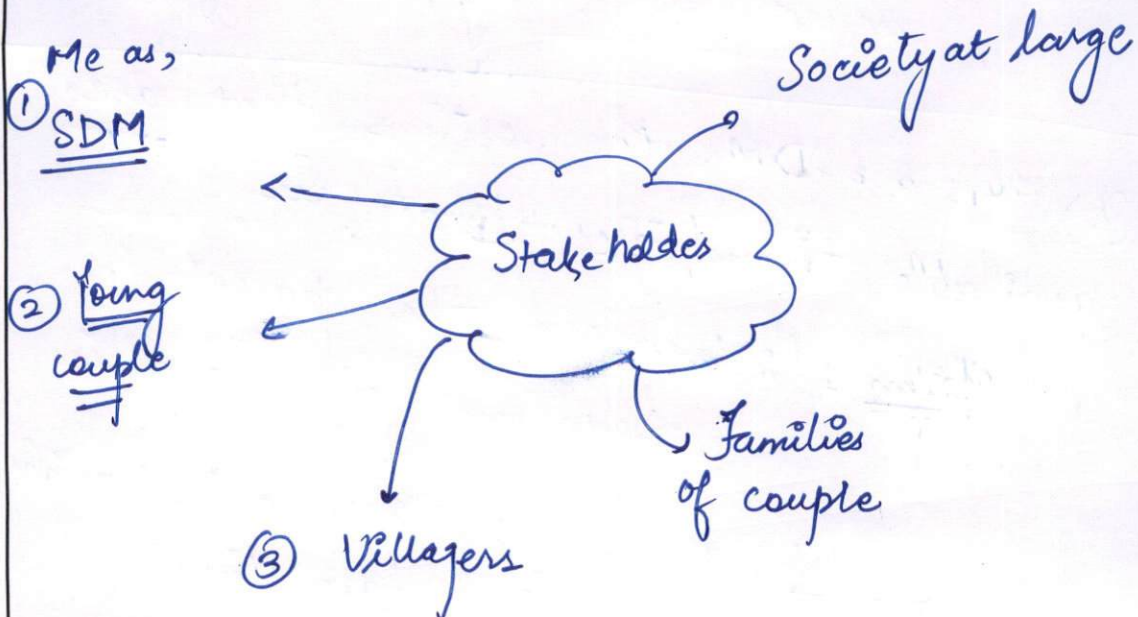 Me as,
① SDM
Society at large
Stakeholdes
② Young
couple
Families
of couple
③ Villagers